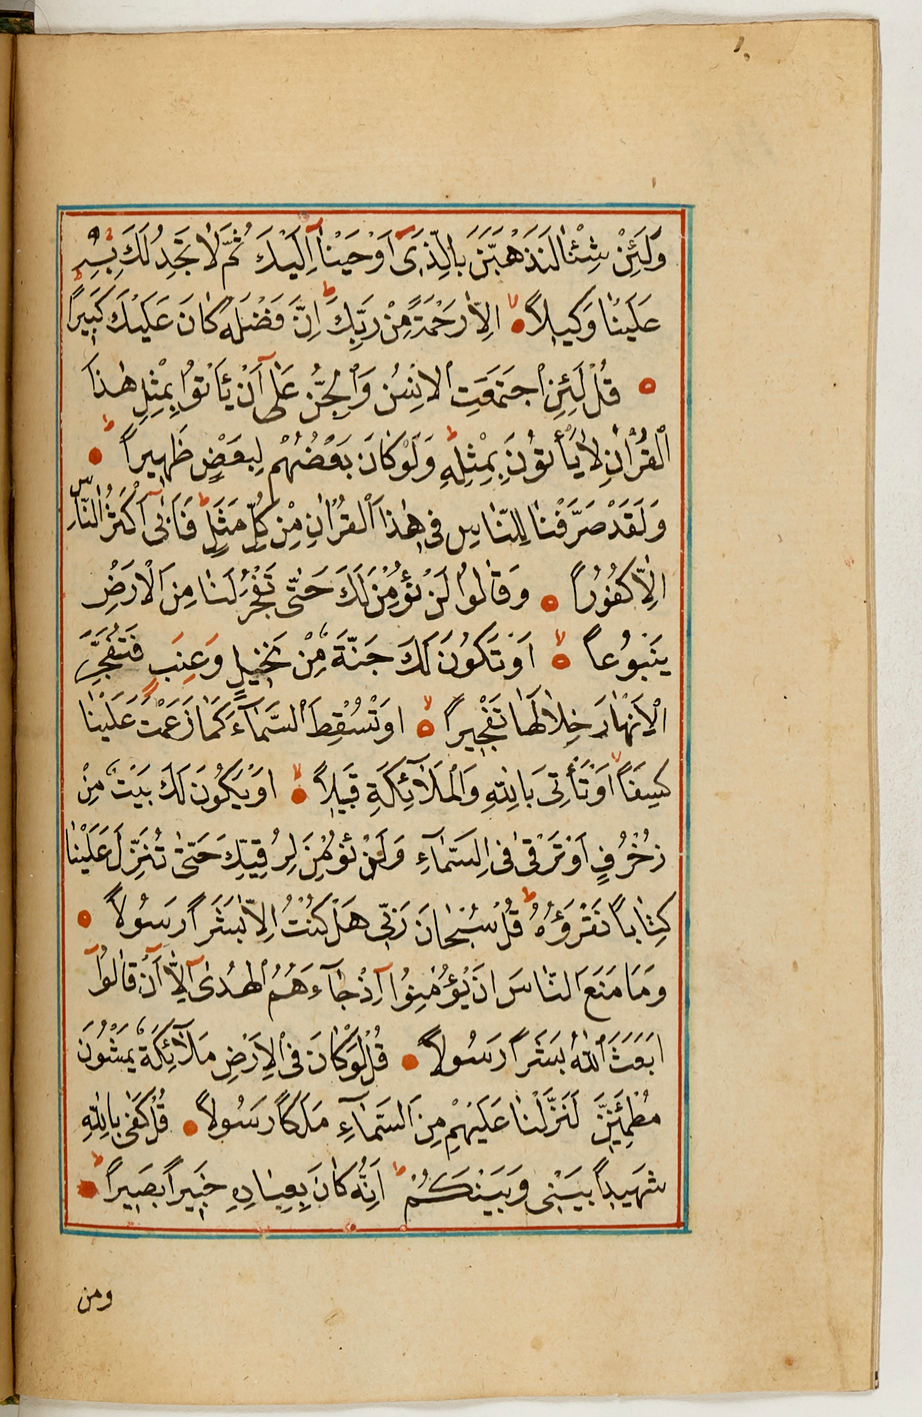 وَلَئِنْ شِئْنَا لَنَذْهَبَنَّ بِالَّذِي اَوْحَيْنَا اِلَيْكَ ثُمَّ لَا تَجِدُ لَكَ بِهِ
عَلَيْنَا وَكِيلاً اِلَّا رَحْمَةً مِنْ رَبِّكَ اِنَّ فَضْلَهُ كَانَ عَلَيْكَ كَبِيراً
قُلْ لَئِنِ اجْتَمَعَتِ الْاِنْسُ وَالْجِنُّ عَلَى اَنْ يَأْتُوا بِمِثْلِ هٰذَا
الْقُرْاٰنِ لَا يَأْتُونَ بِمِثْلِهِ وَلَوْ كَانَ بَعْضُهُمْ لِبَعْضٍ ظَهِيراً
وَلَقَدْ صَرَّفْنَا لِلنَّاسِ فِي هٰذَا الْقُرْاٰنِ مِنْ كُلِّ مَثَلٍ فَاَبٰى اَكْثَرُ النَّاسِ
اِلَّا كُفُوراً وَقَالُوا لَنْ نُؤْمِنَ لَكَ حَتّٰى تَفْجُرَ لَنَا مِنَ الْاَرْضِ
يَنْبُوعاً اَوْ تَكُونَ لَكَ جَنَّةٌ مِنْ نَخِيلٍ وَعِنَبٍ فَتُفَجِّرَ
الْاَنْهَارَ خِلَالَهَا تَفْجِيراً اَوْ تُسْقِطَ السَّمَآءَ كَمَا زَعَمْتَ عَلَيْنَا
كِسَفاً اَوْ تَأْتِيَ بِاللّٰهِ وَالْمَلٰٓائِكَةِ قَبِيلاً اَوْ يَكُونَ لَكَ بَيْتٌ مِنْ
زُخْرُفٍ اَوْ تَرْقٰى فِي السَّمَآءِ وَلَنْ نُؤْمِنَ لِرُقِيِّكَ حَتّٰى تُنَزِّلَ عَلَيْنَا
كِتَاباً نَقْرَؤُهُ قُلْ سُبْحَانَ رَبِّي هَلْ كُنْتُ اِلَّا بَشَراً رَسُولاً
وَمَا مَنَعَ النَّاسَ اَنْ يُؤْمِنُوا اِذْ جَآءَهُمُ الْهُدٰى اِلَّا اَنْ قَالُوا
اَبَعَثَ اللّٰهُ بَشَراً رَسُولاً قُلْ لَوْ كَانَ فِي الْاَرْضِ مَلٰٓائِكَةٌ يَمْشُونَ
مُطْمَئِنِّينَ لَنَزَّلْنَا عَلَيْهِمْ مِنَ السَّمَآءِ مَلَكاً رَسُولاً قُلْ كَفٰى بِاللّٰهِ
شَهِيداً بَيْنِي وَبَيْنَكُمْ اِنَّهُ كَانَ بِعِبَادِهِ خَبِيراً بَصِيراً
ومن